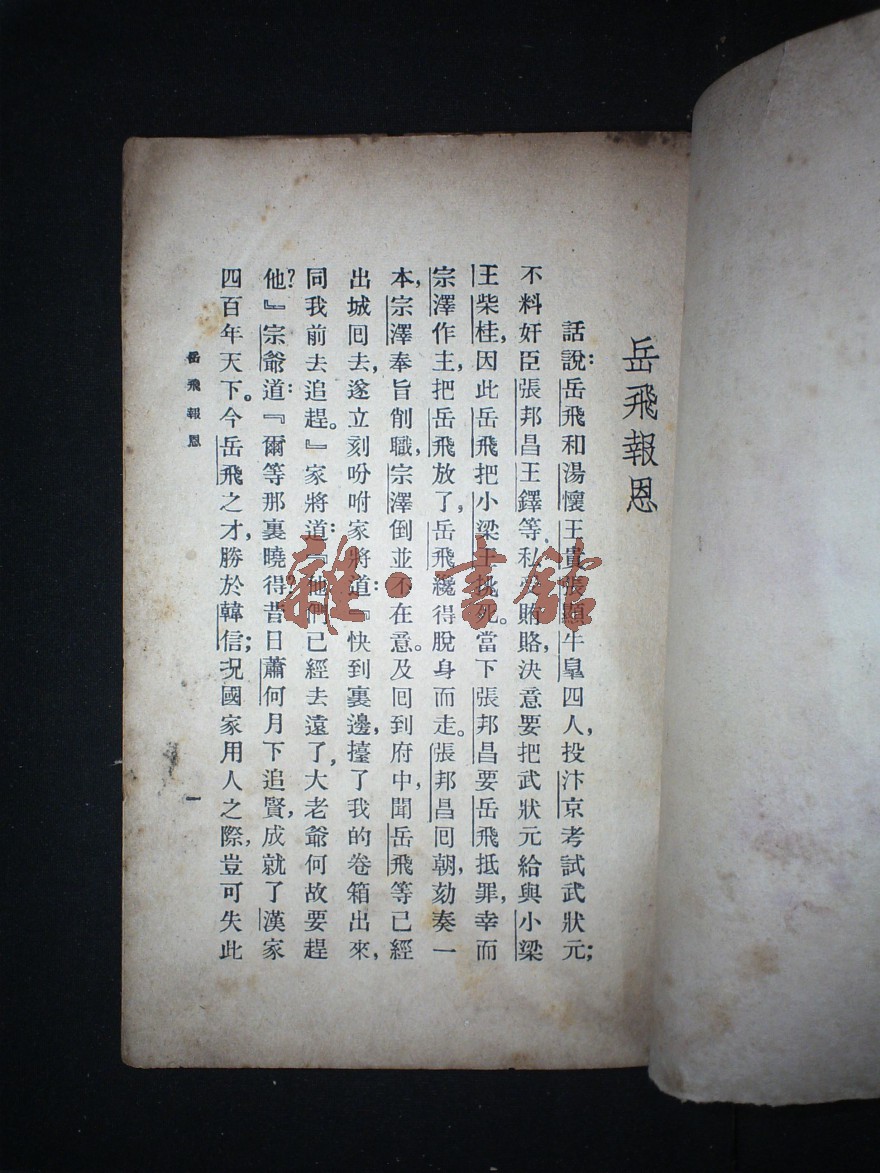 岳飛報恩
話說：岳飛和湯懷王貴張顯牛皐四人，投汴京考試武狀元；
不料奸臣張邦昌王鐸等，私受賄賂，決意要把武狀元給與小梁
王柴桂，因此岳飛把小梁王挑死。當下張邦昌要岳飛抵罪，幸而
宗澤作主，把岳飛放了，岳飛纔得脫身而走。張邦昌囘朝，劾奏一
本，宗澤奉旨削職，宗澤倒並不在意。及囘到府中，聞岳飛等已經
出城囘去，遂立刻吩咐家將道：『快到裏邊，擡了我的卷箱出來，
同我前去追趕。』家將道：『他們已經去遠了，大老爺何故要趕
他？』宗爺道：『爾等那裏曉得？昔日蕭何月下追賢，成就了漢家
四百年天下。今岳飛之才，勝於韓信；况國家用人之際，豈可失此
岳飛報恩
一
雜·書館